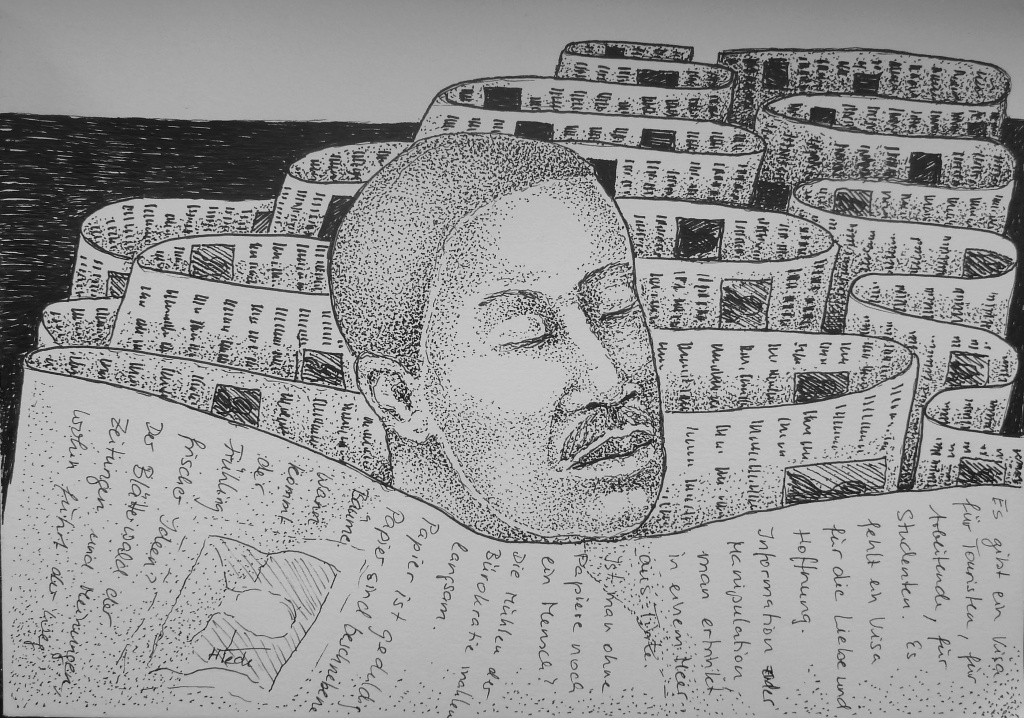 Es gibt ein Visa
für Touristen, für
Arbeitende, für
Studenten. Es
fehlt ein Visa
für die Liebe und
Hoffnung.
Information oder
Manipulation
man ertrinkt
in einem Meer
aus Tinte.
Ist man ohne
Papiere noch
ein Mensch?
Die Mühlen der
Bürokratie mahlen
langsam.
Papier ist geduldig,
Papier sind beschriebene
Bäume,
Wann
kommt
der
Frühling,
frischer Ideen?
Der Blätterwald der
Zeitungen und Meinungen,
wohin führt der Weg?